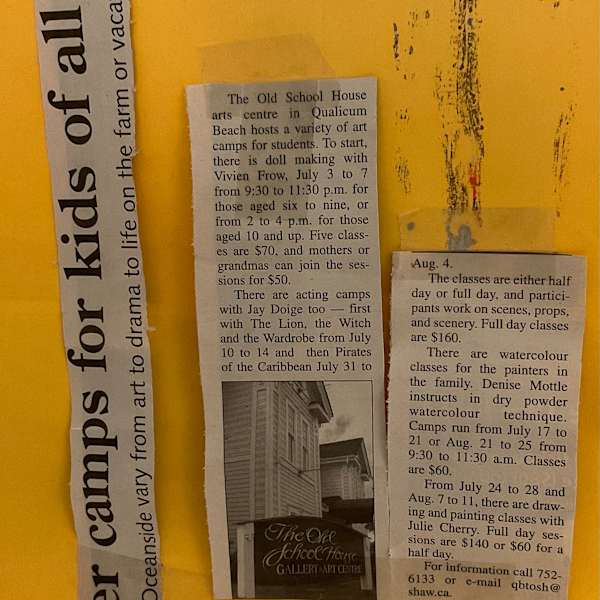 er camps for kids of all
Oceanside vary from art to drama to life on the farm or vaca
The Old School House
arts centre in Qualicum
Beach hosts a variety of art
camps for students. To start,
there is doll making with
Vivien Frow, July 3 to 7
from 9:30 to 11:30 p.m. for
those aged six to nine, or
from 2 to 4 p.m. for those
aged 10 and up. Five class-
es are $70, and mothers or
grandmas can join the ses-
sions for $50.
There are acting camps
with Jay Doige too — first
with The Lion, the Witch
and the Wardrobe from July
10 to 14 and then Pirates
of the Caribbean July 31 to
The Old
School House
GALLERY & ART CENTRE
Aug. 4.
The classes are either half
day or full day, and partici-
pants work on scenes, props,
and scenery. Full day classes
are $160.
There are watercolour
classes for the painters in
the family. Denise Mottle
instructs in dry powder
watercolour technique.
Camps run from July 17 to
21 or Aug. 21 to 25 from
9:30 to 11:30 a.m. Classes
are $60.
From July 24 to 28 and
Aug. 7 to 11, there are draw-
ing and painting classes with
Julie Cherry. Full day ses-
sions are $140 or $60 for a
half day.
For information call 752-
6133 or e-mail qbtosh@
shaw.ca.